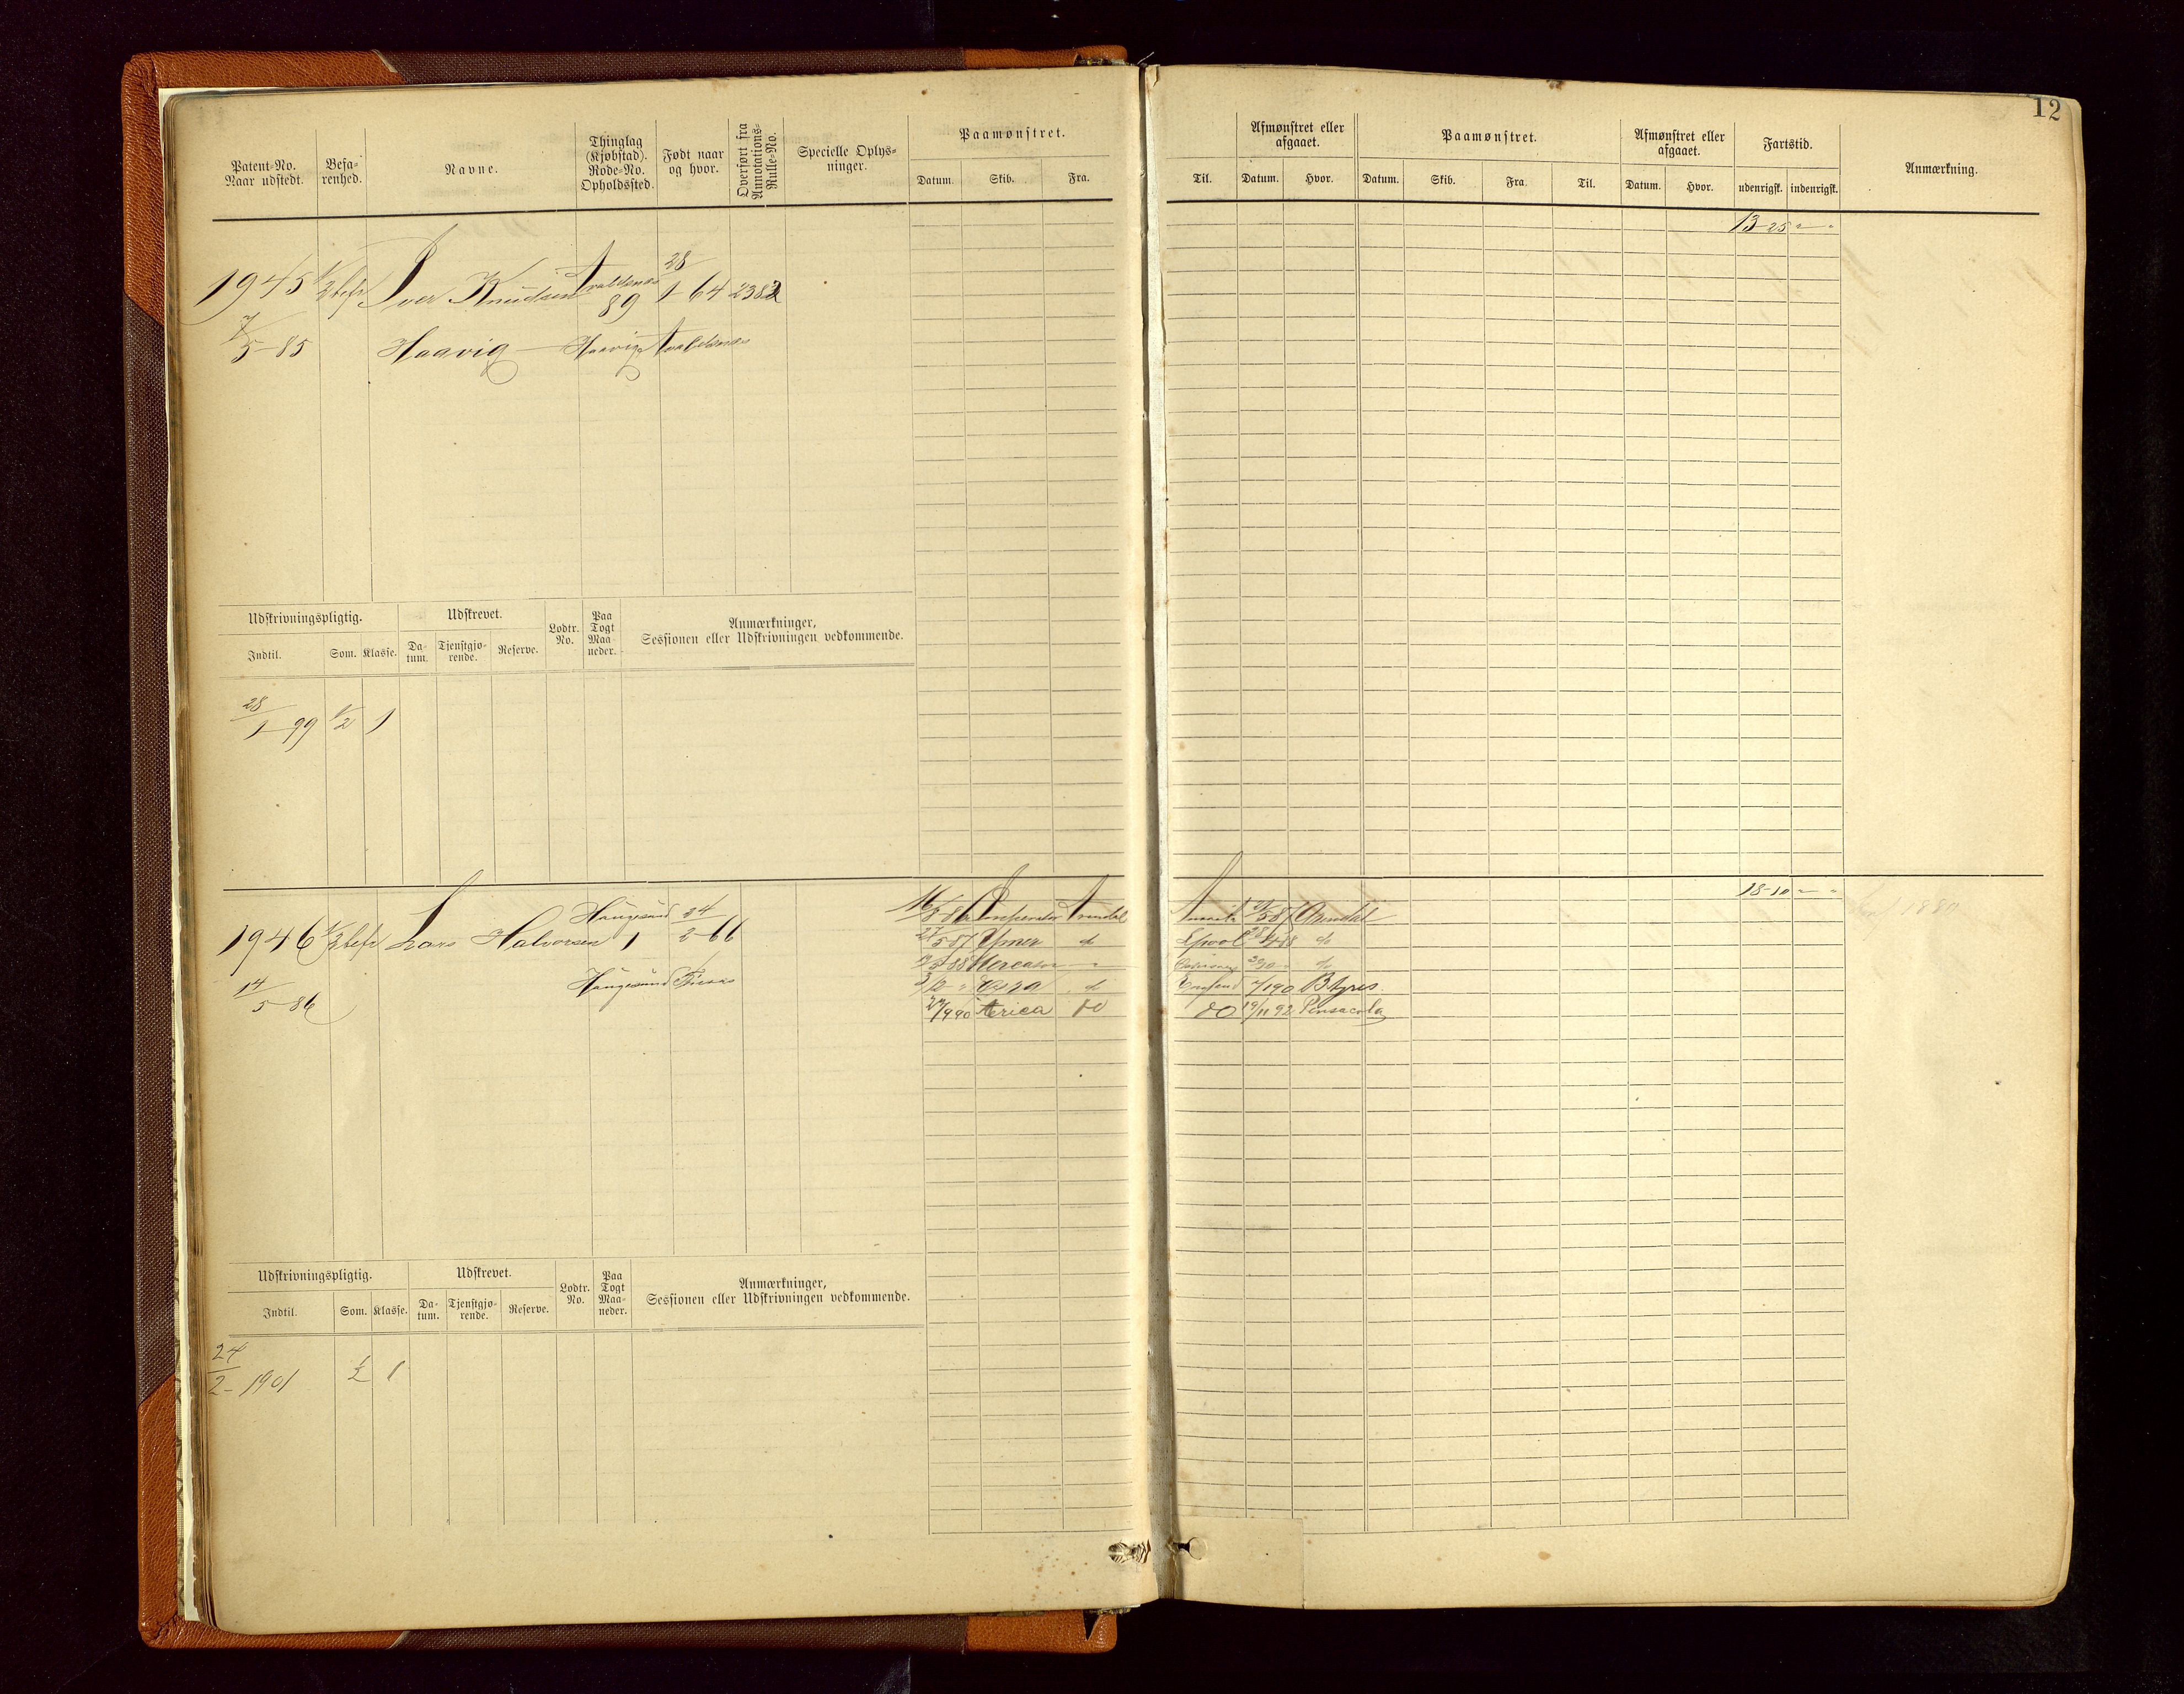 12
Patent-No. Naar udstedt.
Befarenhed.
Navne.
Thinglag (Kjøbstad). Rode-No. Opholdssted.
Født naar og hvor.
Overført fra Annotations-Rulle-No.
Specielle Oplysninger.
Paamønstret.
Datum. Skib. Fra. Til.
Afmønstret eller afgaaet.
Datum. Hvor.
Paamønstret.
Datum. Skib. Fra. Til.
Afmønstret eller afgaaet.
Datum. Hvor.
Fartstid.
udenrigsk. indenrigsk.
Anmærkning.
13-25 " "
1945 1/2 befr Iver Knudsen Avaldsnes 89 28/1-64 2382
7/5-85 Haavig Haavig Avaldsnes
Udskrivningspligtig. Udskrevet. Lodtr. No. Paa Togt Maaneder. Anmærkninger, Sessionen eller Udskrivningen vedkommende.
Indtil. Som. Klasse. Datum. Tjenstgjørende. Reserve.
28/1 99 1/2 1
18-10 " "
1946 1/2 befr Lars Halvorsen Haugesund 1 24/2-66
14/5-86 Haugesund
Imperator Arendal 87 Arendal
27/5 87 Ymer do do
88 Mercator " do
do 90 B Ayres
90 Erica do do 19/11 92 Pensacola
Udskrivningspligtig. Udskrevet. Lodtr. No. Paa Togt Maaneder. Anmærkninger, Sessionen eller Udskrivningen vedkommende.
Indtil. Som. Klasse. Datum. Tjenstgjørende. Reserve.
24/2-1901 1/2 1